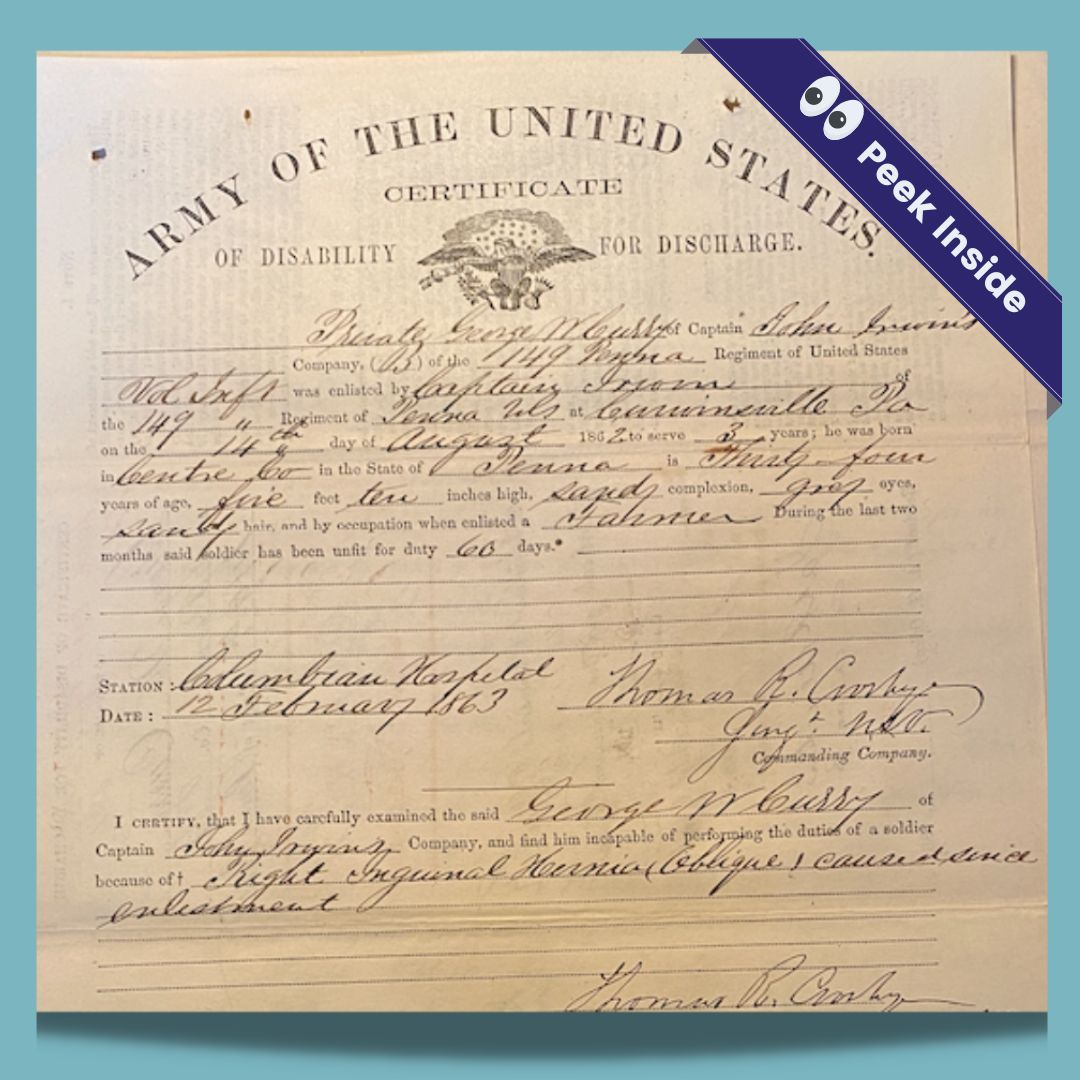 Peek Inside
ARMY OF THE UNITED STATES.
CERTIFICATE
OF DISABILITY FOR DISCHARGE.
Private George W Curry of Captain John Irwin's
Company, (B) of the 149 Penna Regiment of United States
Vol Inft was enlisted by Captain Irwin of
the 149 " Regiment of Penna Vols at Curwinsville Pa
on the 14th day of August 1862 to serve 3 years; he was born
in Centre Co in the State of Penna is Thirty-four
years of age, five feet ten inches high, sandy complexion, grey eyes,
sandy hair, and by occupation when enlisted a Farmer During the last two
months said soldier has been unfit for duty 60 days.*
STATION: Columbian Hospital
DATE: 12 February 1863
Thomas R. Crosby
Surgt. U.S.V.
Commanding Company.
I CERTIFY, that I have carefully examined the said George W Curry of
Captain John Irwins Company, and find him incapable of performing the duties of a soldier
because of† Right Inguinal Hernia (Oblique) caused since
enlistment
Thomas R. Crosby